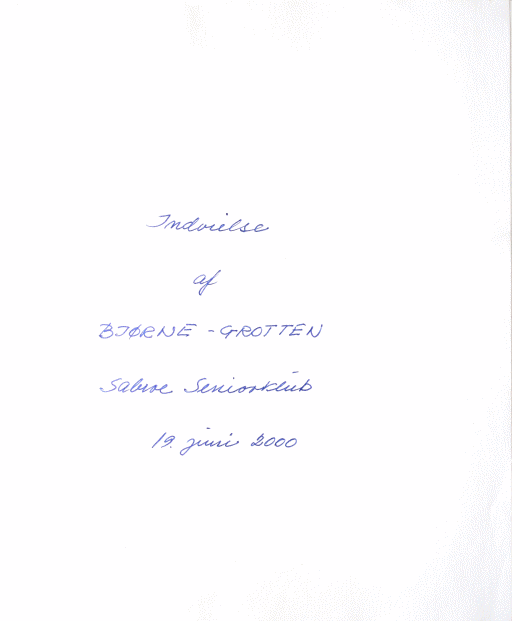 Indvielse
af
BJØRNE-GROTTEN
Sabroe Seniorklub
19. juni 2000